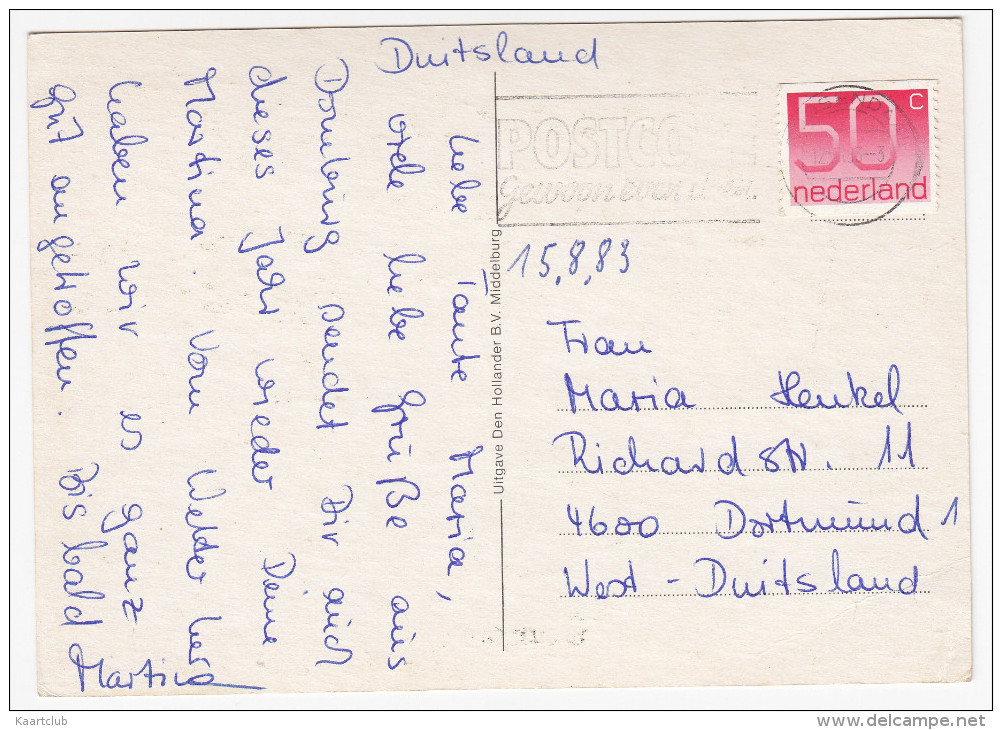 Duitsland
Liebe Tante Maria,
viele liebe Grüße aus
Domburg sendet Dir auch
dieses Jahr wieder Deine
Martina. Vom Wetter her
haben wir es ganz
gut angetroffen. Bis bald
Martina
Uitgave Den Hollander B.V. Middelburg
POSTCO
Gewoon even
50 c
nederland
15.8.83
Frau
Maria Henkel
Richardstr. 11
4600 Dortmund 1
West-Duitsland
Kaartclub
www.delcampe.net